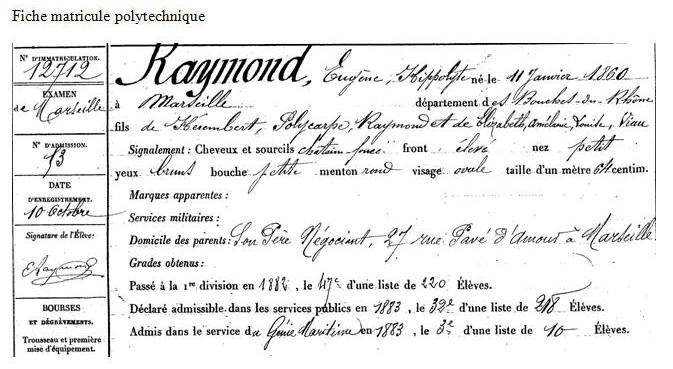 Fiche matricule polytechnique
N° D'IMMATRICULATION.
12712
EXAMEN
de Marseille
N° D'ADMISSION.
13
DATE
D'ENREGISTREMENT.
10 Octobre
Signature de l'Élève:
ERaymond
BOURSES
ET DÉGRÈVEMENTS.
Trousseau et première
mise d'équipement.
Raymond, Eugène, Hippolyte né le 11 Janvier 1860
à Marseille département des Bouches-du-Rhône
fils de Polycarpe, Raymond et de Elizabeth, Amélanie, Louise, Viau
Signalement: Cheveux et sourcils châtain foncé front élevé nez petit
yeux bruns bouche petite menton rond visage ovale taille d'un mètre 64 centim.
Marques apparentes:
Services militaires:
Domicile des parents: Son Père Négociant, 27 rue Pavé d'Amour à Marseille
Grades obtenus:
Passé à la 1re division en 1882, le 47e d'une liste de 220 Élèves.
Déclaré admissible dans les services publics en 1883, le 32e d'une liste de 218 Élèves.
Admis dans le service du Génie Maritime en 1883, le 3e d'une liste de 10 Élèves.